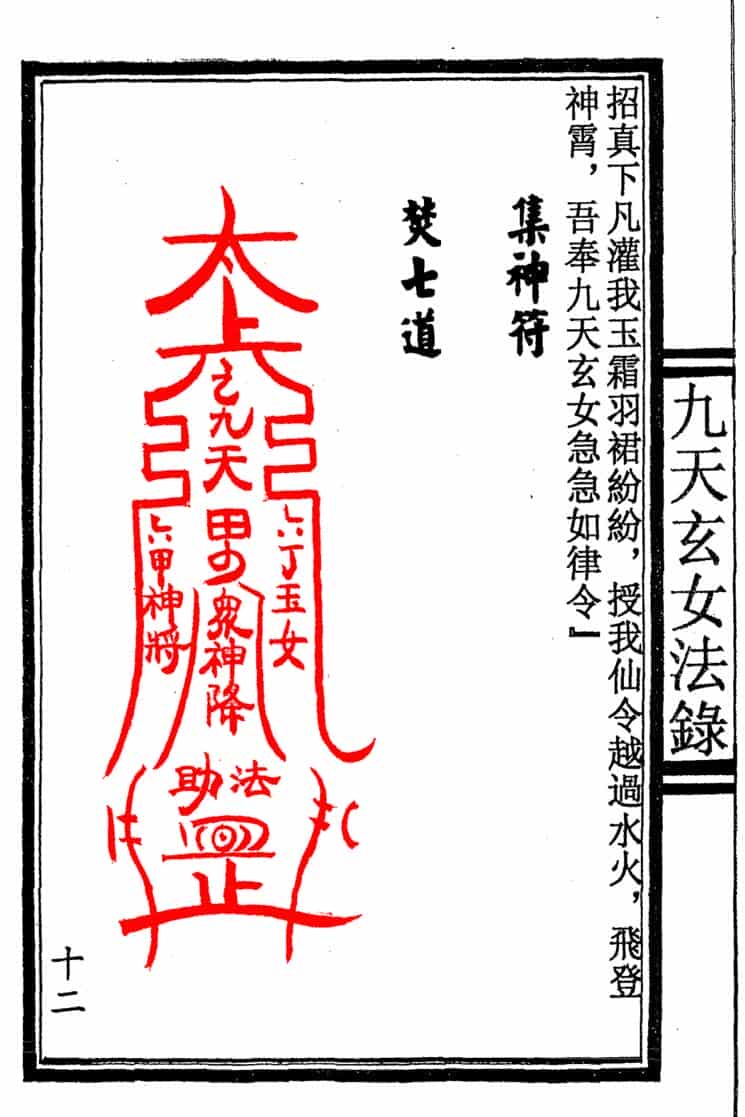 九天玄女法錄
招真下凡灌我玉霜羽裙紛紛，授我仙令越過水火，飛登
神霄，吾奉九天玄女急急如律令』
集神符
焚七道
太上
九天
六丁玉女
眾神降
六甲神將
助法
十二